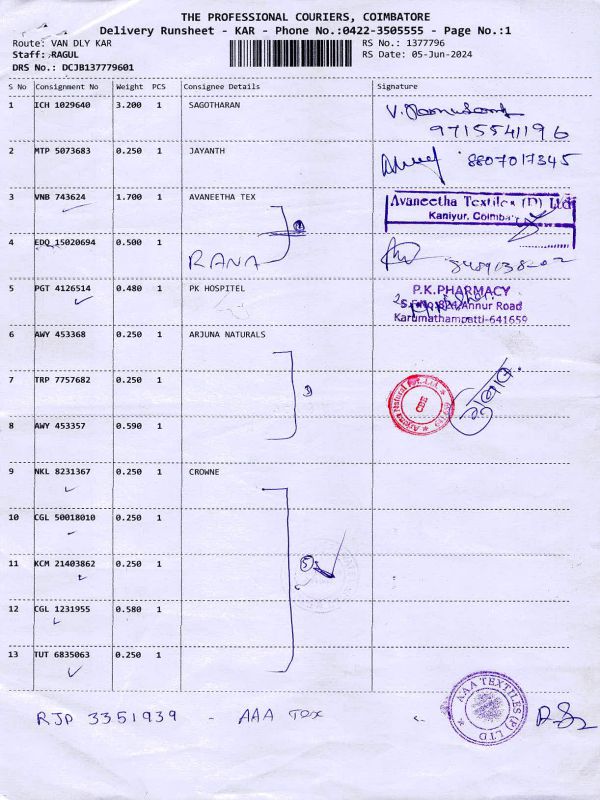 THE PROFESSIONAL COURIERS, COIMBATORE
Delivery Runsheet - KAR - Phone No.:0422-3505555 - Page No.:1
Route: VAN DLY KAR
RS No.: 1377796
Staff: RAGUL
RS Date: 05-Jun-2024
DRS No.: DCJB137779601
S No Consignment No Weight PCS Consignee Details Signature
1 ICH 1029640 3.200 1 SAGOTHARAN
9715541196
2 MTP 5073683 0.250 1 JAYANTH
8807017345
3 VNB 743624 1.700 1 AVANEETHA TEX
Avaneetha Textiles (P) Ltd
Kaniyur, Coimba
4 EDQ 15020694 0.500 1
RANA
5 PGT 4126514 0.480 1 PK HOSPITEL
P.K.PHARMACY
Annur Road
Karumathampatti-641659
6 AWY 453368 0.250 1 ARJUNA NATURALS
7 TRP 7757682 0.250 1
3
8 AWY 453357 0.590 1
9 NKL 8231367 0.250 1 CROWNE
10 CGL 50018010 0.250 1
11 KCM 21403862 0.250 1
5
12 CGL 1231955 0.580 1
13 TUT 6835063 0.250 1
RJP 3351939 - AAA Tex
AAA TEXTILES (P) LTD